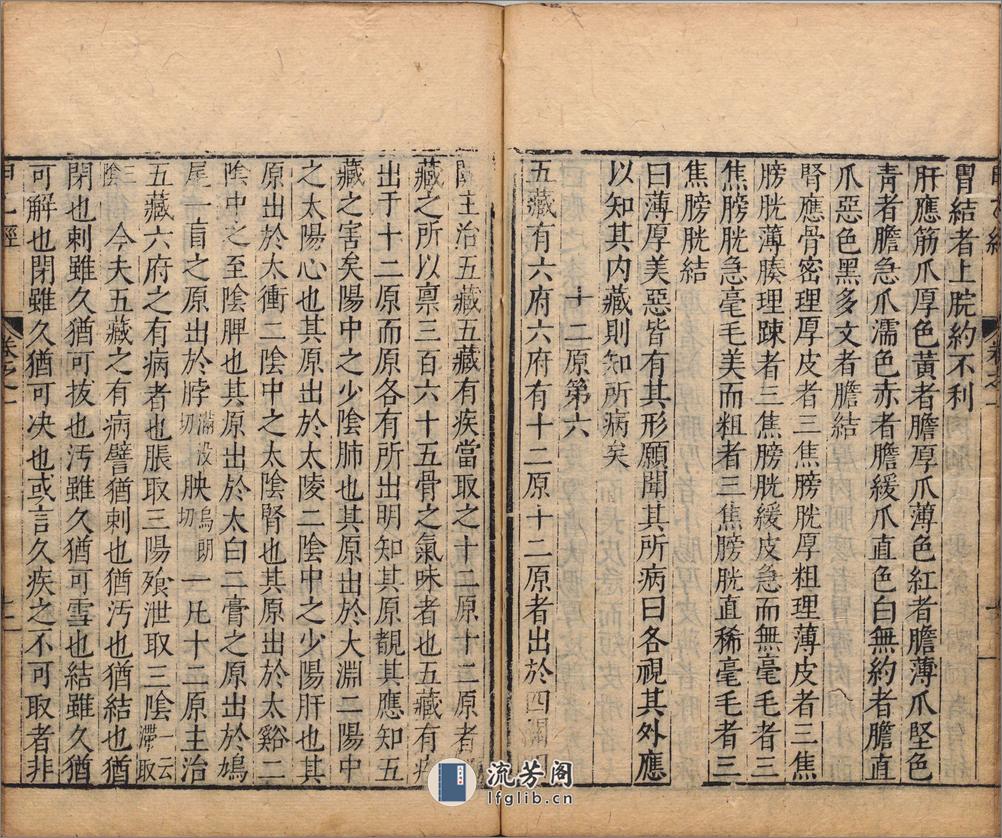 胃結者上脘約不利
肝應筋爪厚色黃者膽厚爪薄色紅者膽薄爪堅色
青者膽急爪濡色赤者膽緩爪直色白無約者膽直
爪惡色黑多文者膽結
腎應骨密理厚皮者三焦膀胱厚粗理薄皮者三焦
膀胱薄腠理踈者三焦膀胱緩皮急而無毫毛者三
焦膀胱急毫毛美而粗者三焦膀胱直稀毫毛者三
焦膀胱結
曰薄厚美惡皆有其形願聞其所病曰各視其外應
以知其内藏則知所病矣
十二原第六
五藏有六府六府有十二原十二原者出於四關四
關主治五藏五藏有疾當取之十二原十二原者
藏之所以稟三百六十五骨之氣味者也五藏有疾
出于十二原而原各有所出明知其原覩其應知五
藏之害矣陽中之少陰肺也其原出於大淵二陽中
之太陽心也其原出於太陵二陰中之少陽肝也其
原出於太衝二陰中之太陰腎也其原出於太谿二
陰中之至陰脾也其原出於太白二膏之原出於鳩
尾一肓之原出於脖滿没切胦烏朗切一凡十二原主治
五藏六府之有病者也脹取三陽飱泄取三陰一云滯取
三陰今夫五藏之有病譬猶刺也猶汚也猶結也猶
閉也刺雖久猶可拔也汚雖久猶可雪也結雖久猶
可解也閉雖久猶可决也或言久疾之不可取者非
甲乙經
卷之一
十二
流芳阁
lfglib.cn